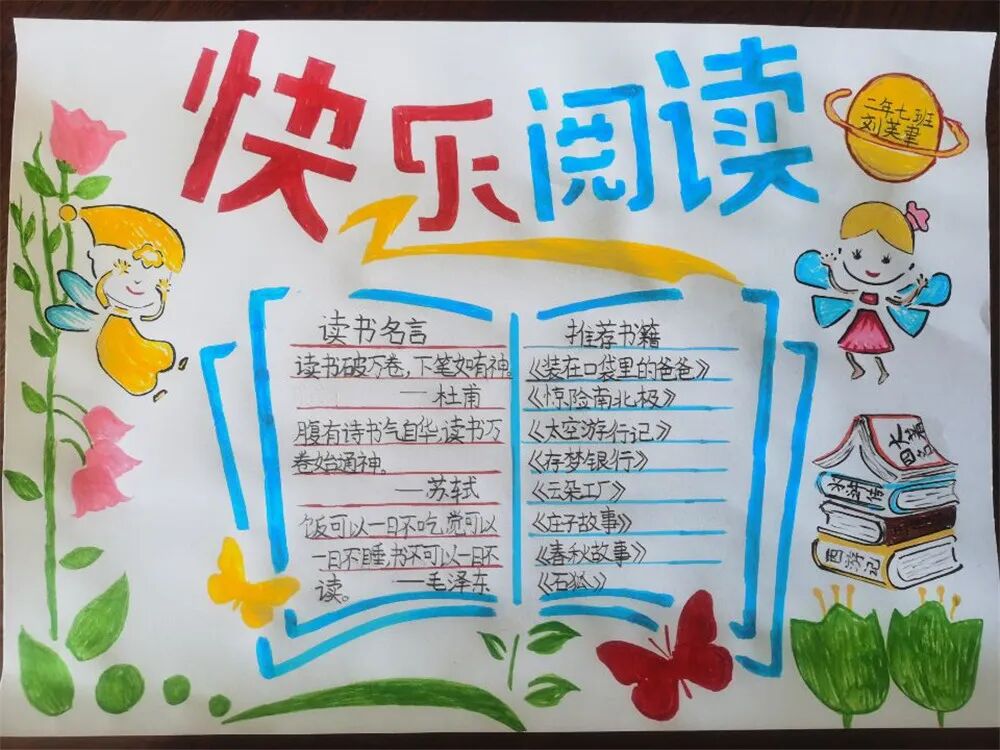 快乐阅读
二年七班
刘英聿
读书名言
读书破万卷，下笔如有神。
——杜甫
腹有诗书气自华，读书万
卷始通神。
——苏轼
饭可以一日不吃，觉可以
一日不睡，书不可以一日不
读。——毛泽东
推荐书籍
《装在口袋里的爸爸》
《惊险南北极》
《太空游行记》
《存梦银行》
《云朵工厂》
《庄子故事》
《春秋故事》
《石狐》
四大名著
水浒传
西游记